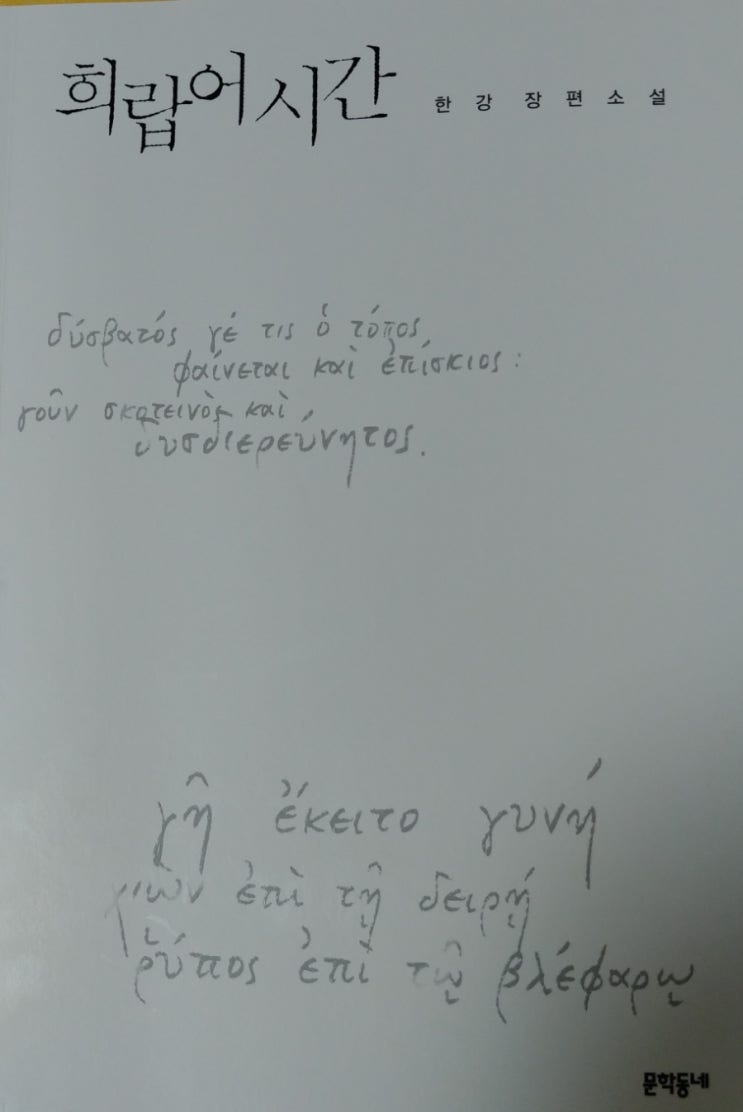 희랍어 시간 한강 장편소설
δύσβατός γέ τις ὁ τόπος
φαίνεται καὶ ἐπίσκιος:
γοῦν σκοτεινὸς καὶ
δυσδιερεύνητος.
γῆ ἔκειτο γυνή
χιὼν ἐπὶ τῇ δειρῇ
ῥύπος ἐπὶ τῷ βλέφαρῳ
문학동네